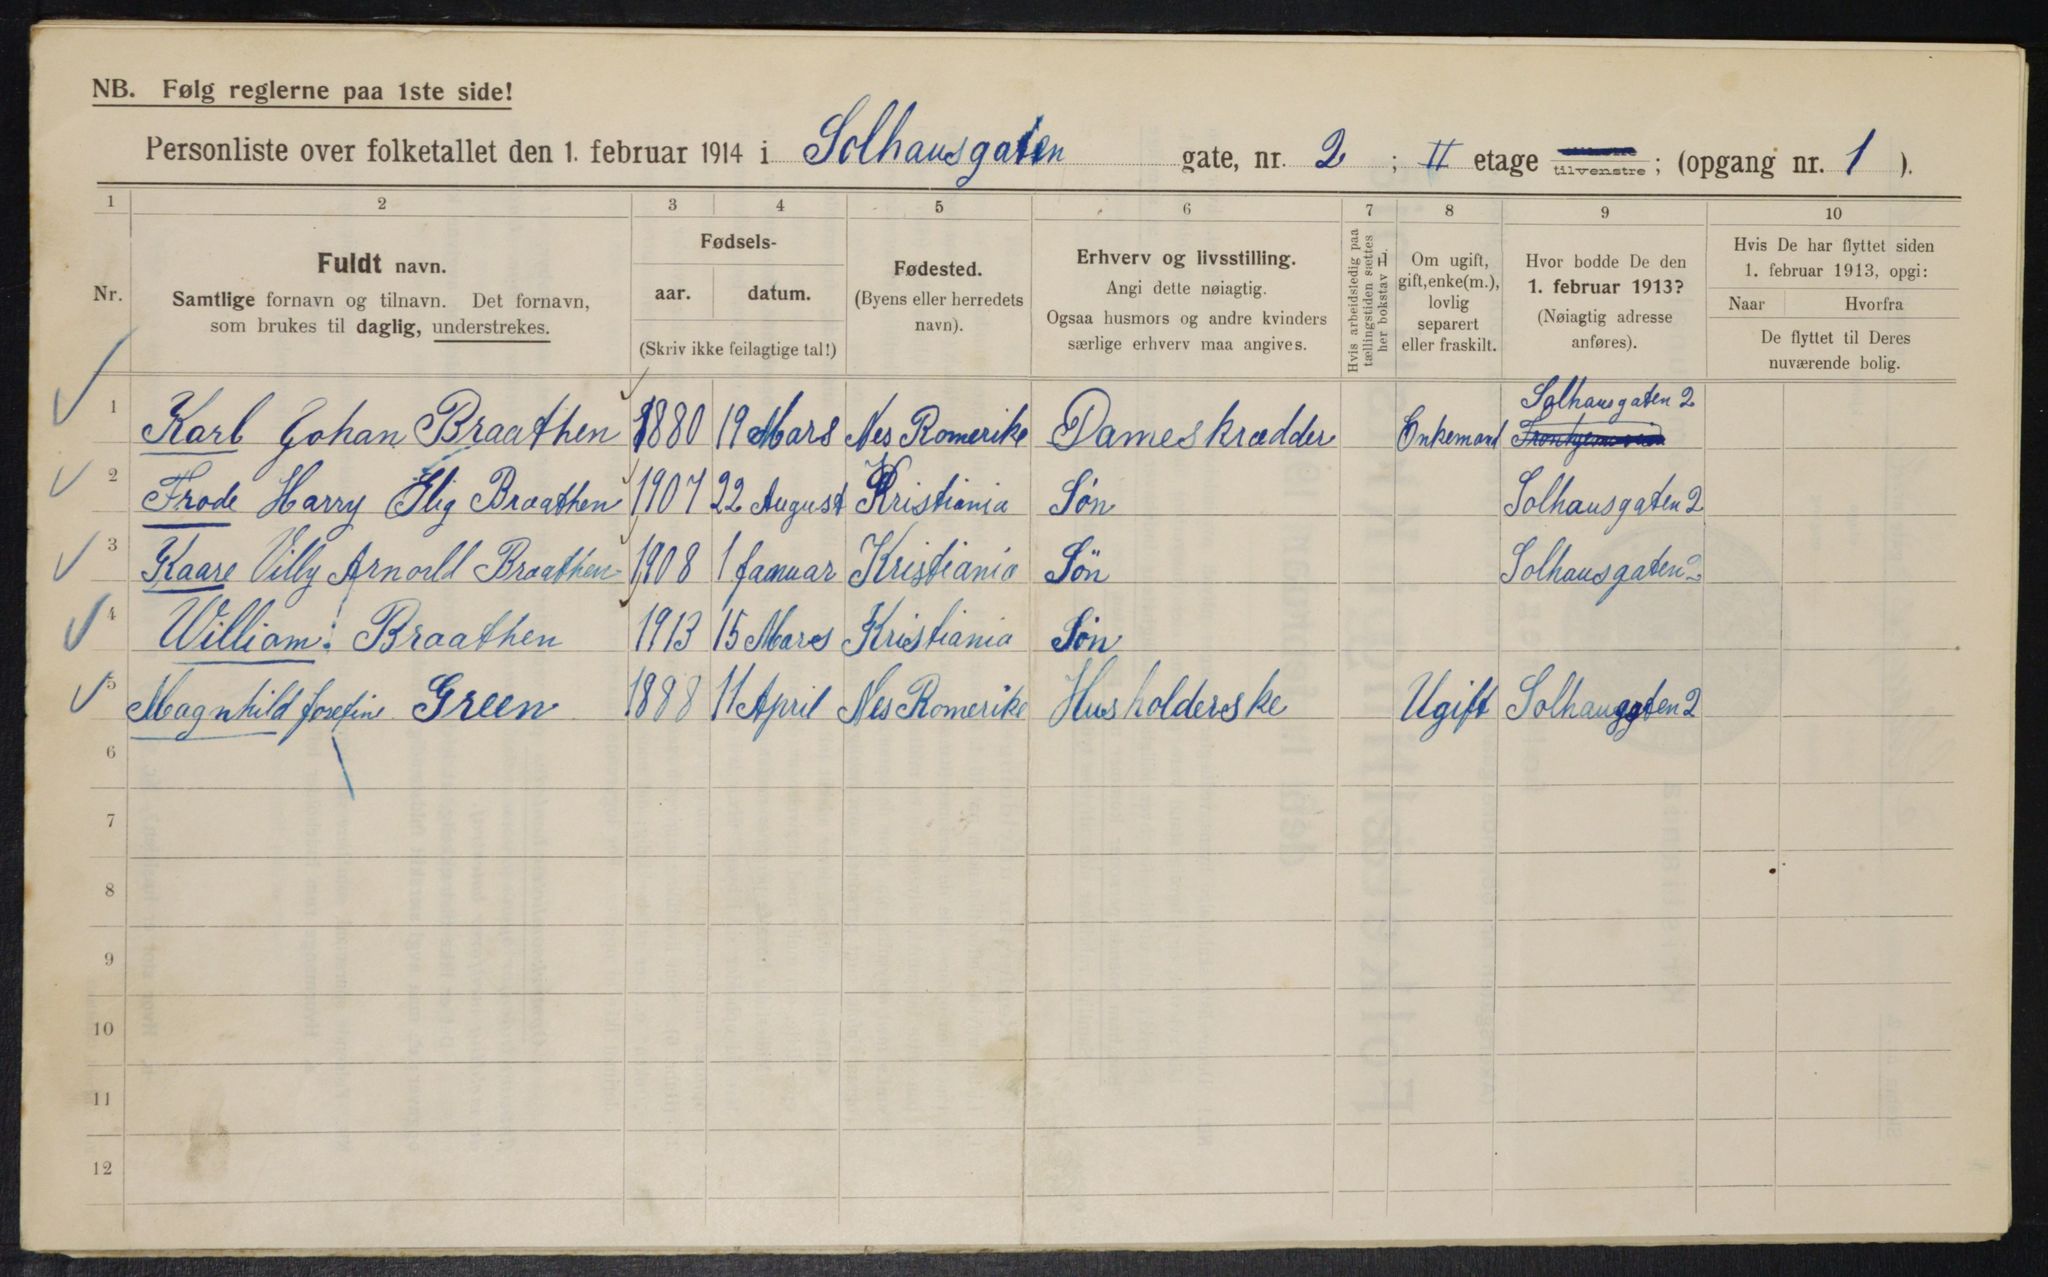 NB. Følg reglerne paa 1ste side!
Personliste over folketallet den 1. februar 1914 i Solhausgaten gate, nr. 2 ; II etage tilvenstre ; (opgang nr. 1 ).
1 2 3 4 5 6 7 8 9 10
Nr.
Fuldt navn.
Samtlige fornavn og tilnavn. Det fornavn,
som brukes til daglig, understrekes.
Fødsels-
aar. datum.
(Skriv ikke feilagtige tal!)
Fødested.
(Byens eller herredets
navn).
Erhverv og livsstilling.
Angi dette nøiagtig.
Ogsaa husmors og andre kvinders
særlige erhverv maa angives.
Hvis arbeidsledig paa
tællingstiden sættes
her bokstav L.
Om ugift,
gift, enke(m.),
lovlig
separert
eller fraskilt.
Hvor bodde De den
1. februar 1913?
(Nøiagtig adresse
anføres).
Hvis De har flyttet siden
1. februar 1913, opgi:
Naar Hvorfra
De flyttet til Deres
nuværende bolig.
Solhausgaten 2
1 Karl Johan Braathen 1880 19 Mars Nes Romerike Dameskrædder Enkemand
2 Frode Harry Elig Braathen 1907 22 August Kristiania Søn Solhausgaten 2
3 Kaare Villy Arnorld Braathen 1908 1 Januar Kristiania Sön Solhausgaten 2
4 William Braathen 1913 15 Mars Kristiania Søn
5 Magnhild Josefine Green 1888 11 April Nes Romerike Husholderske Ugift Solhausgaten 2
6
7
8
9
10
11
12